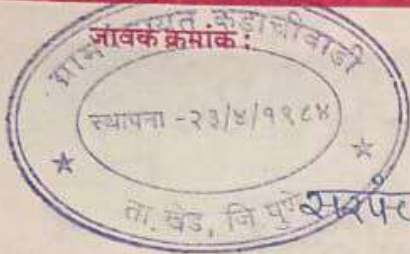 जावक क्रमांक :
ग्रामपंचायत कडाचीवाडी
स्थापना -२३/४/१९८४
ता. खेड, जि पुणे
सरपंच